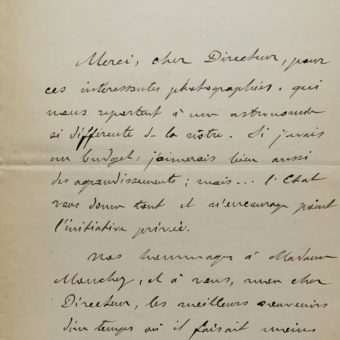 Merci, cher Directeur, pour
ces intéressantes photographies, qui
nous reportent à une astronomie
si différente de la nôtre. Si j'avais
un budget, j'aimerais bien aussi
des agrandissements ; mais... l'Etat
vous donne tant et n'encourage point
l'initiative privée.
Nos hommages à Madame
Mouchez, et à vous, mon cher
Directeur, les meilleurs souvenirs
d'un temps où il faisait moins